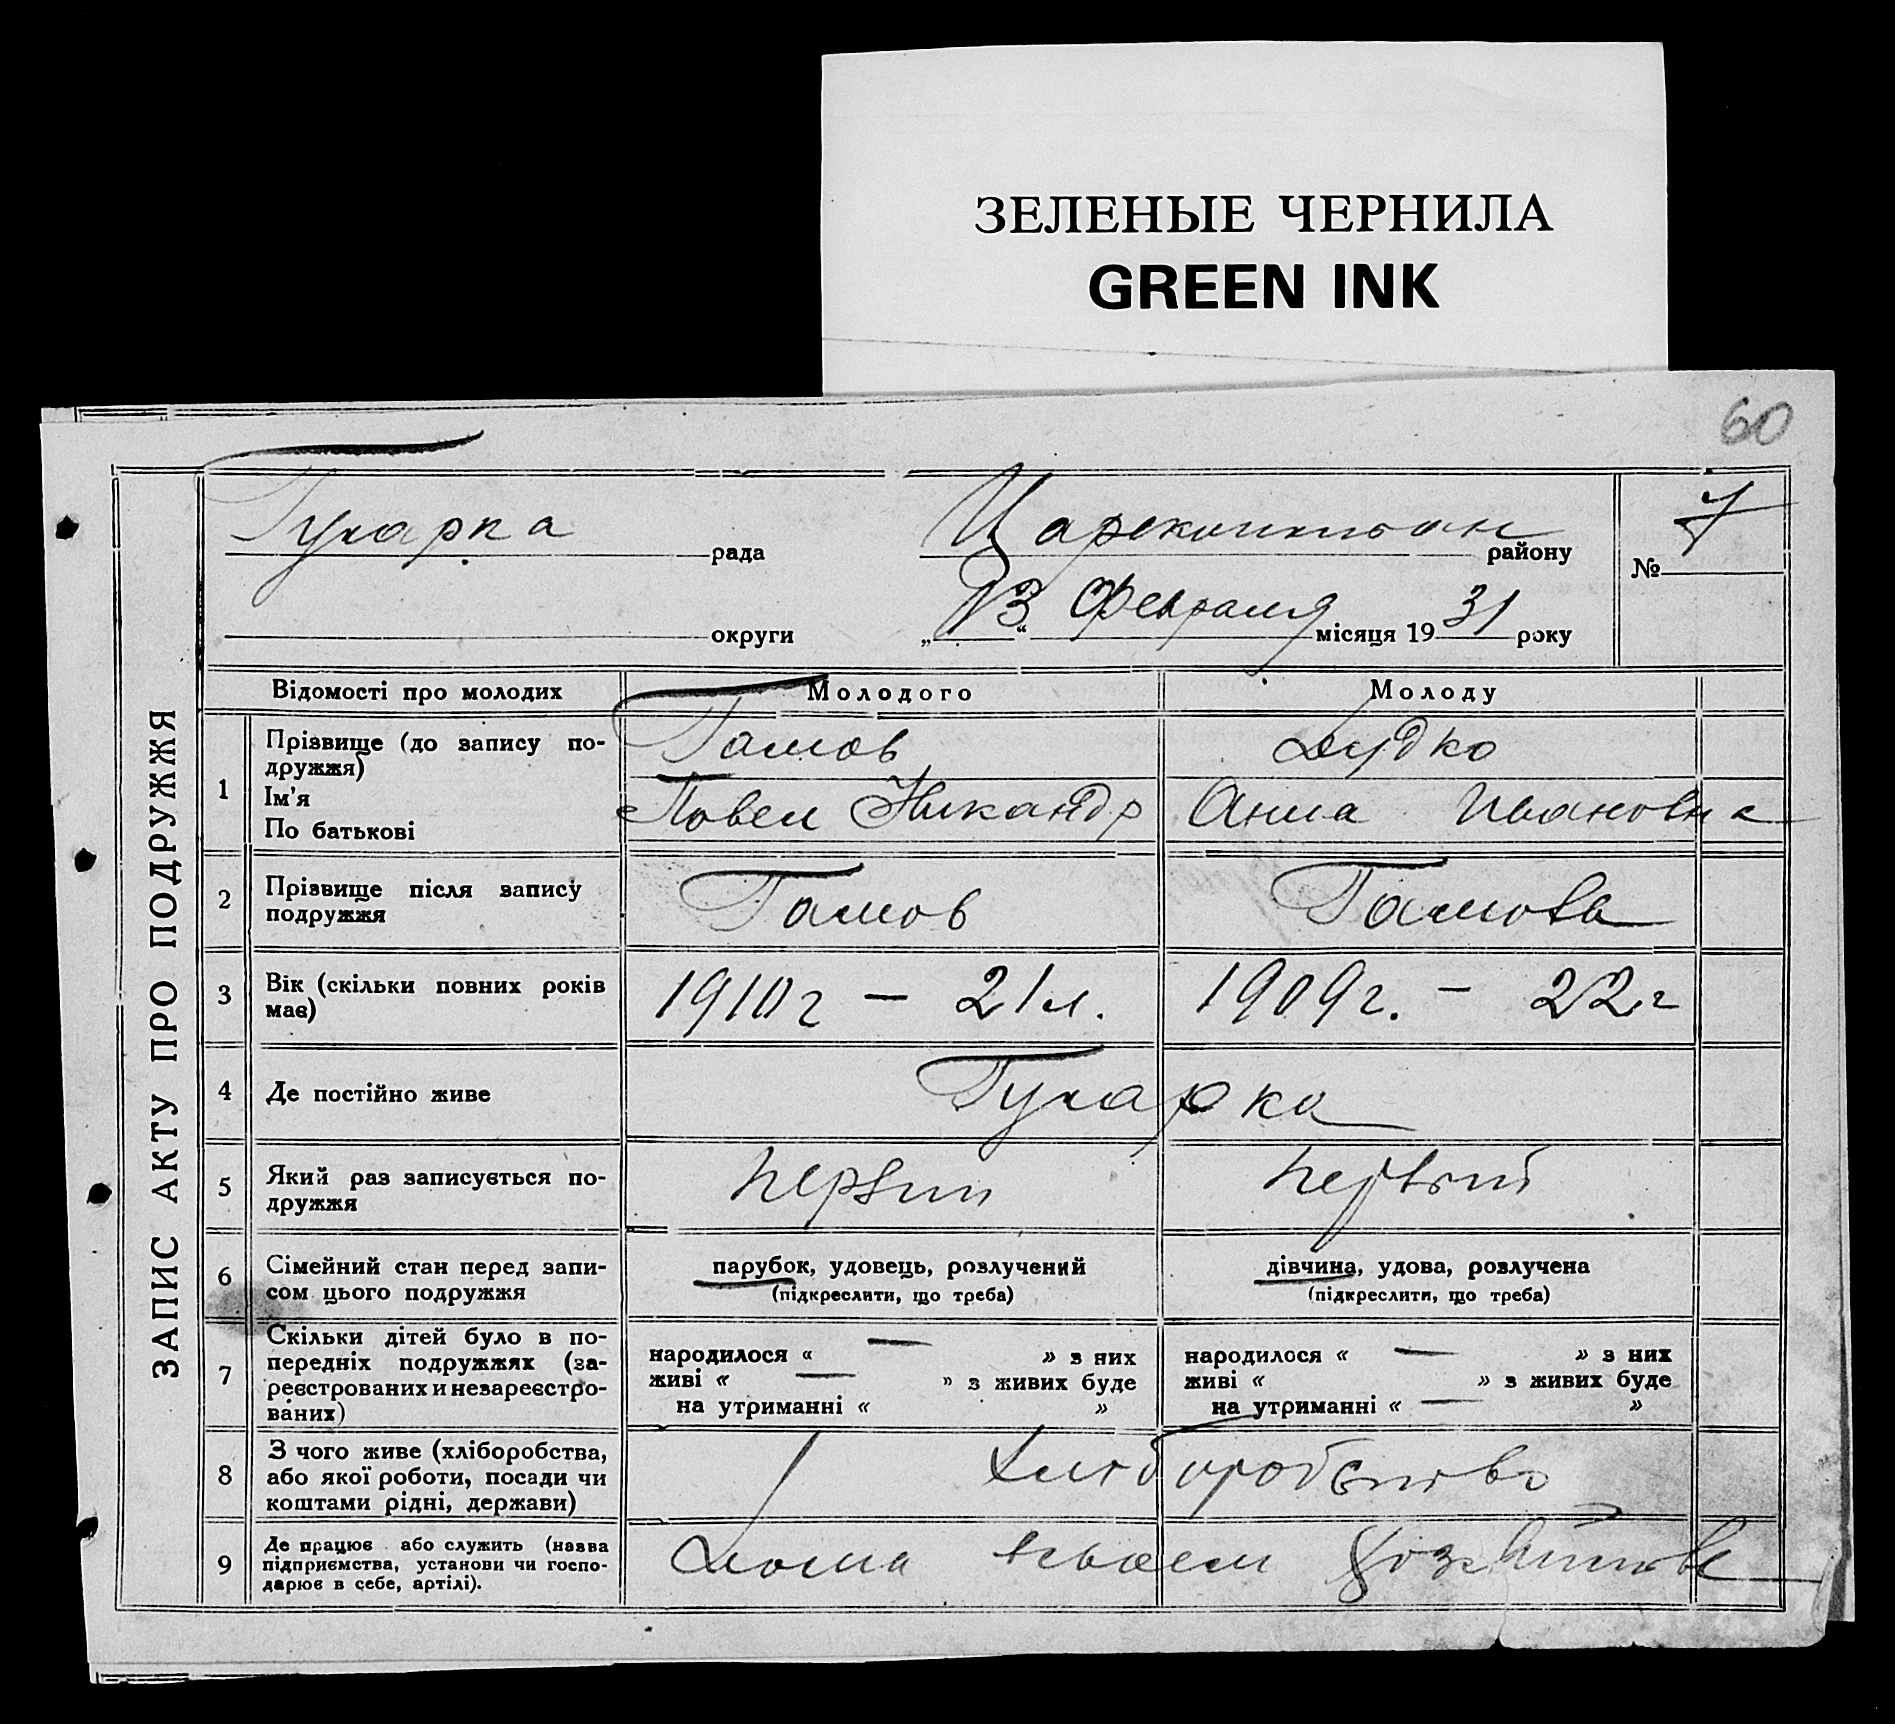 ЗЕЛЕНЫЕ ЧЕРНИЛА
GREEN INK
60
ЗАПИС АКТУ ПРО ПОДРУЖЖЯ
рада
району
№ 7
округи
„13“ Февраля місяця 1931 року
Відомості про молодих
Молодого
Молоду
1
Прізвище (до запису по-
дружжя)
Ім'я
По батькові
Гамов
Дудко
Павел Никандр
Анна Ивановна
2
Прізвище після запису
подружжя
Гамов
Гамова
3
Вік (скільки повних років
має)
1910г — 21л.
1909г. — 22г
4
Де постійно живе
5
Який раз записується по-
дружжя
первий
первый
6
Сімейний стан перед запи-
сом цього подружжя
парубок, удовець, розлучений
(підкреслити, що треба)
дівчина, удова, розлучена
(підкреслити, що треба)
7
Скільки дітей було в по-
передніх подружжях (за-
реєстрованих и незареєстро-
ваних)
народилося « — » з них
живі « — » з живих буде
на утриманні « »
народилося « — » з них
живі « » з живих буде
на утриманні « — »
8
З чого живе (хліборобства,
або якої роботи, посади чи
коштами рідні, держави)
9
Де працює або служить (назва
підприємства, установи чи госпо-
дарює в себе, артілі).
Дома